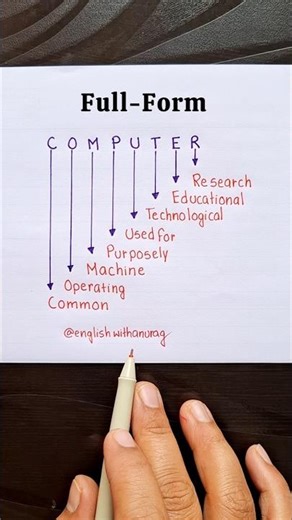 Full-Form
C O M P U T E R
Research
Educational
Technological
Used for
Purposely
Machine
Operating
Common
@englishwithanurag